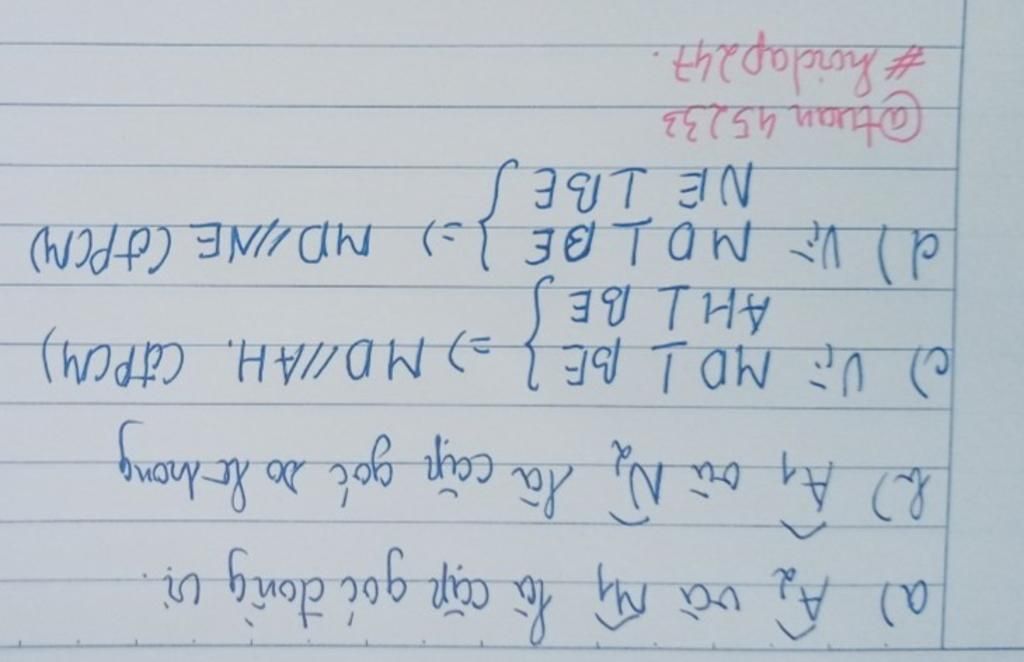 a) Â₂ và M̂₁ là cặp góc đồng vị.
b) Â₁ và N̂₂ là cặp góc so le trong
c) Vì: MD ⊥ BE } => MD//AH. (đPCM)
AH ⊥ BE
d) Vì MD ⊥ BE } => MD//NE (đPCM)
NE ⊥ BE
@tuan45233
#hoidap247.